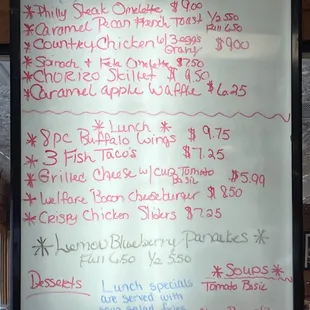 * Philly Steak Omelette $9.00
* Caramel Pecan French Toast 1/2 5.50 Full 6.50
* Country Chicken w/ 3 eggs Gravy $9.00
* Spinach + Feta Omelette $7.50
* Chorizo Skillet $9.50
* Caramel apple Waffle $6.25
* Lunch *
* 8pc Buffalo Wings $9.75
* 3 Fish Tacos $7.25
* Grilled Cheese w/ cup Tomato Basil $5.99
* Welfare Bacon cheeseburger $8.50
* Crispy Chicken Sliders $7.25
* Lemon Blueberry Pancakes *
Full 6.50 1/2 5.50
Desserts
Lunch specials
are served with
* Soups *
Tomato Basil